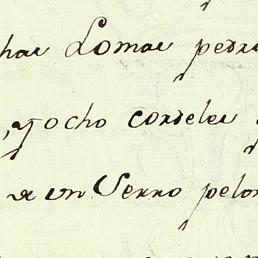 has Lomas pedr
, y ocho cordeles
de un Serro pelon